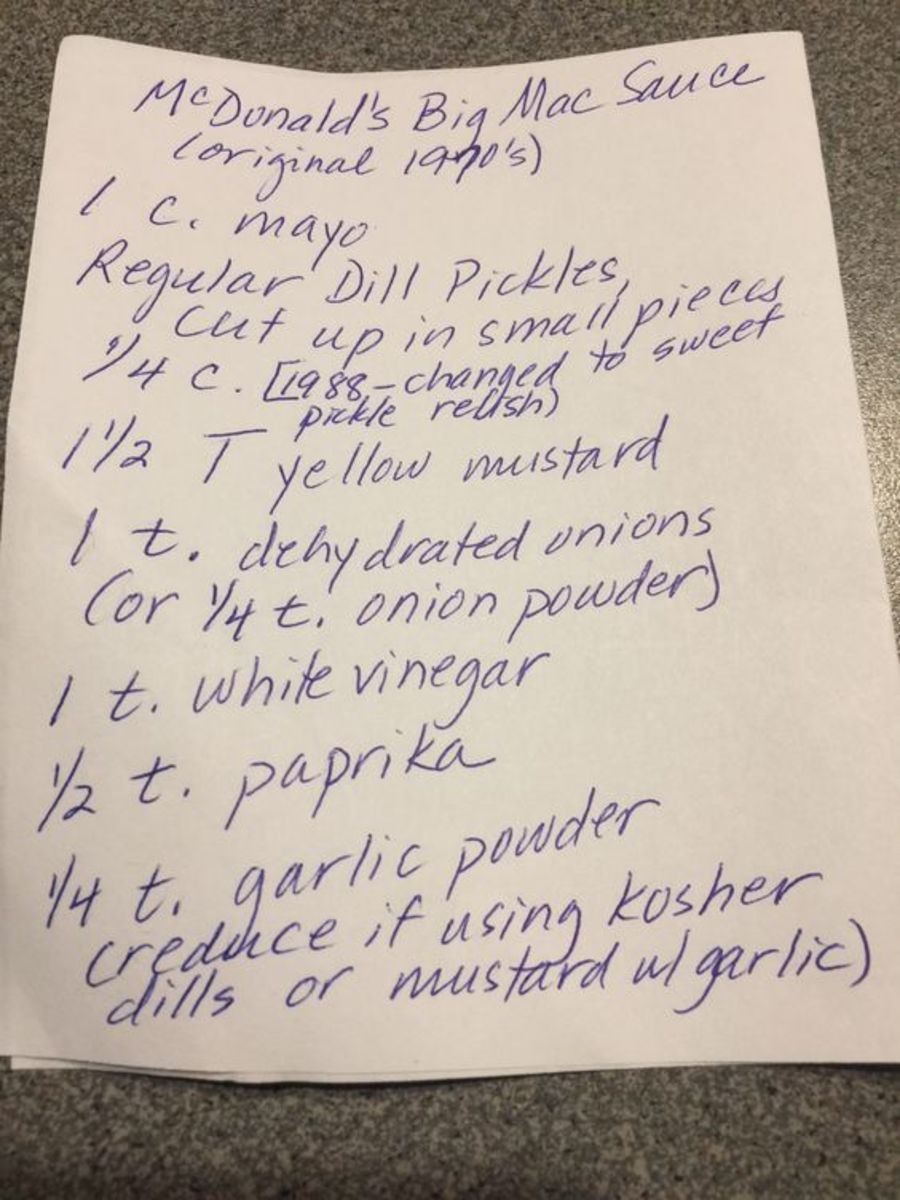 McDonald's Big Mac Sauce
(original 1970's)
1 c. mayo
Regular Dill Pickles,
Cut up in small pieces
1/4 c. [1988-changed to sweet
pickle relish)
1 1/2 T yellow mustard
1 t. dehydrated onions
(or 1/4 t. onion powder)
1 t. white vinegar
1/2 t. paprika
1/4 t. garlic powder
(reduce if using kosher
dills or mustard w/ garlic)